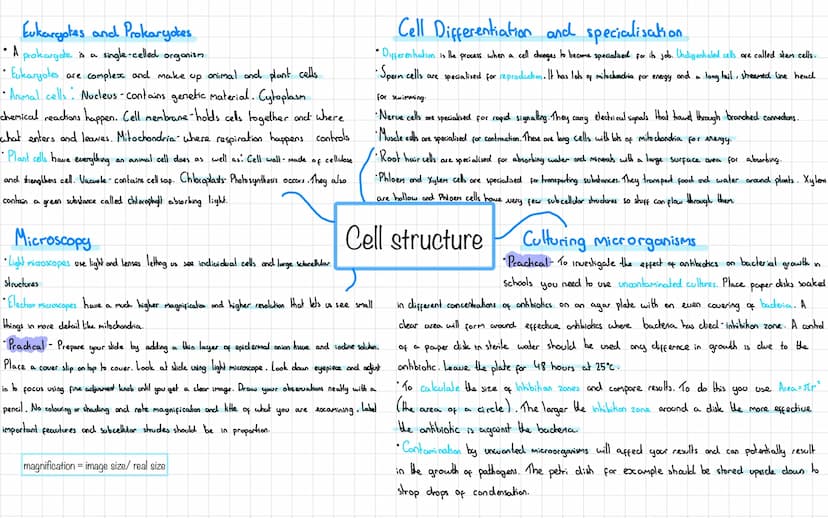 Eukaryotes and Prokaryotes
• A prokaryote is a single-celled organism
• Eukaryotes are complex and make up animal and plant cells
• Animal cells: Nucleus - contains genetic material. Cytoplasm
chemical reactions happen. Cell membrane - holds cells together and where
what enters and leaves. Mitochondria - where respiration happens controls
• Plant cells have everything an animal cell does as well as: Cell wall - made of cellulose
and strengthens cell. Vacuole - contains cell sap. Chloroplasts - Photosynthesis occurs. They also
contain a green substance called chlorophyll absorbing light.
Cell Differentiation and specialisation
• Differentiation is the process when a cell changes to become specialised for its job. Undifferentiated cells are called stem cells.
• Sperm cells are specialised for reproduction. It has lots of mitochondria for energy and a long tail, streamlined head
for swimming.
• Nerve cells are specialised for rapid signalling. They carry electrical signals that travel through branched connections.
• Muscle cells are specialised for contraction. These are long cells with lots of mitochondria for energy.
• Root hair cells are specialised for absorbing water and minerals with a large surface area for absorbing.
• Phloem and Xylem cells are specialised for transporting substances. They transport food and water around plants. Xylem
are hollow and Phloem cells have very few subcellular structures so stuff can flow through them
Cell structure
Microscopy
• Light microscopes use light and lenses letting us see individual cells and large subcellular
structures
• Electron microscopes have a much higher magnification and higher resolution that lets us see small
things in more detail like mitochondria.
• Practical - Prepare your slide by adding a thin layer of epidermal onion tissue and iodine solution.
Place a cover slip on top to cover. Look at slide using light microscope. Look down eyepiece and adjust
is to focus using fine adjustment knob until you get a clear image. Draw your observations neatly with a
pencil. No colouring or shading and note magnification and title of what you are examining. Label
important features and subcellular should be in proportion.
magnification = image size/ real size
Culturing microrganisms
• Practical - To investigate the effect of antibiotics on bacterial growth in
schools you need to use uncontaminated cultures. Place paper disks soaked
in different concentrations of antibiotics on an agar plate with an even covering of bacteria. A
clear area will form around effective antibiotics where bacteria has died - inhibition zone. A control
of a paper disk in sterile water should be used any difference in growth is due to the
antibiotic. Leave the plate for 48 hours at 25°c.
• To calculate the size of inhibition zones and compare results. To do this you use Area=πr²
(the area of a circle). The larger the inhibition zone around a disk the more effective
the antibiotic is against the bacteria
• Contamination by unwanted microorganisms will affect your results and can potentially result
in the growth of pathogens. The petri dish for example should be stored upside down to
stop drops of condensation.